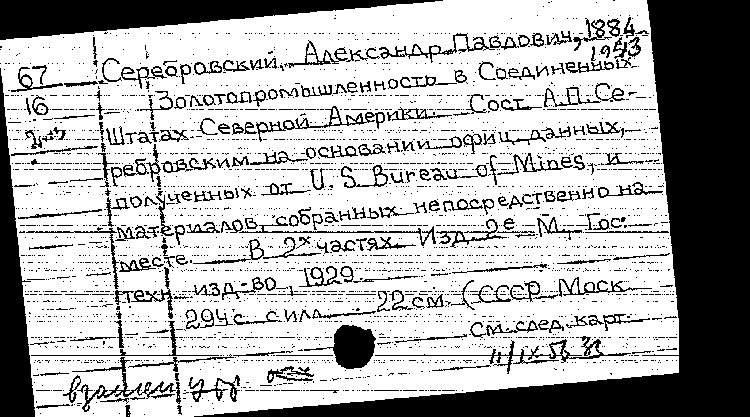 Серебровский, Александр Павлович, 1884
1943
67
Золотопромышленность в Соединенных
16
Штатах Северной Америки. Сост. А.П. Се-
ребровским на основании офиц. данных,
полученных от U.S. Bureau of Mines, и
материалов, собранных непосредственно на
месте. В 2х частях. Изд. 2е М., Гос.
техн. изд-во, 1929.
294 с. с илл. 22 см. (СССР. Моск.
См. след. карт.
11/IX-56